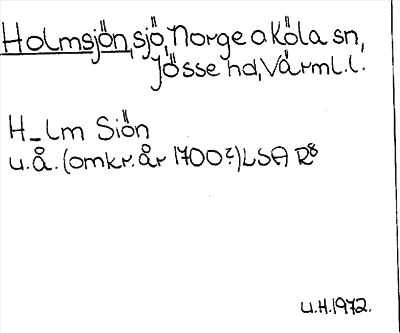 Holmsjön, sjö, Norge o Köla sn,
Jösse hd, Värml. l.
H_lm Siön
u.å. (omkr. år 1700?) LSA R8
U.H. 1972.